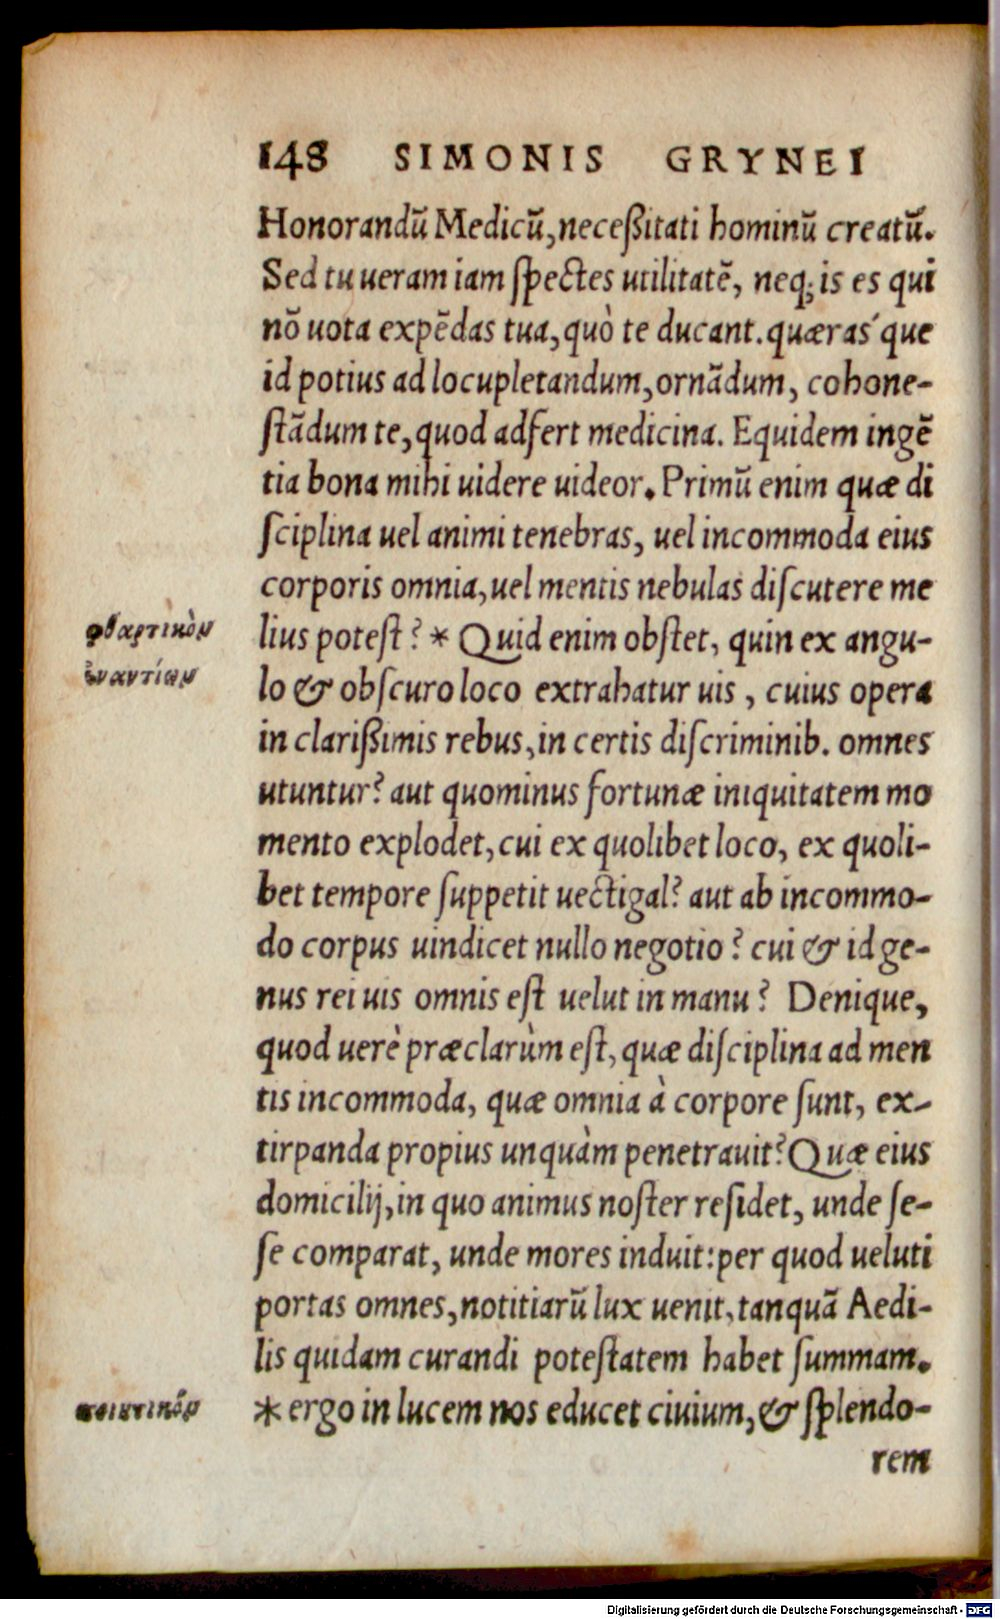 148 SIMONIS GRYNEI
Honorandũ Medicũ, neceßitati hominũ creatũ.
Sed tu ueram iam ſpectes utilitatẽ, neq; is es qui
nõ uota expẽdas tua, quò te ducant. quæras´que
id potius ad locupletandum, ornãdum, cohone-
ſtãdum te, quod adfert medicina. Equidem ingẽ
tia bona mihi uidere uideor. Primũ enim quæ di
ſciplina uel animi tenebras, uel incommoda eius
corporis omnia, uel mentis nebulas diſcutere me
φθαρτικὸν
lius poteſt? * Quid enim obſtet, quin ex angu-
ἐναντίων
lo & obſcuro loco extrahatur uis, cuius opera
in clarißimis rebus, in certis diſcriminib. omnes
utuntur? aut quominus fortunæ iniquitatem mo
mento explodet, cui ex quolibet loco, ex quoli-
bet tempore ſuppetit uectigal? aut ab incommo-
do corpus uindicet nullo negotio? cui & id ge-
nus rei uis omnis eſt uelut in manu? Denique,
quod uerè præclarùm eſt, quæ diſciplina ad men
tis incommoda, quæ omnia à corpore ſunt, ex-
tirpanda propius unquàm penetrauit? Quæ eius
domicilij, in quo animus noſter reſidet, unde ſe-
ſe comparat, unde mores induit: per quod ueluti
portas omnes, notitiarũ lux uenit, tanquã Aedi-
lis quidam curandi poteſtatem habet ſummam.
ποιητικόν
* ergo in lucem nos educet ciuium, & ſplendo-
rem
Digitalisierung gefördert durch die Deutsche Forschungsgemeinschaft - DFG